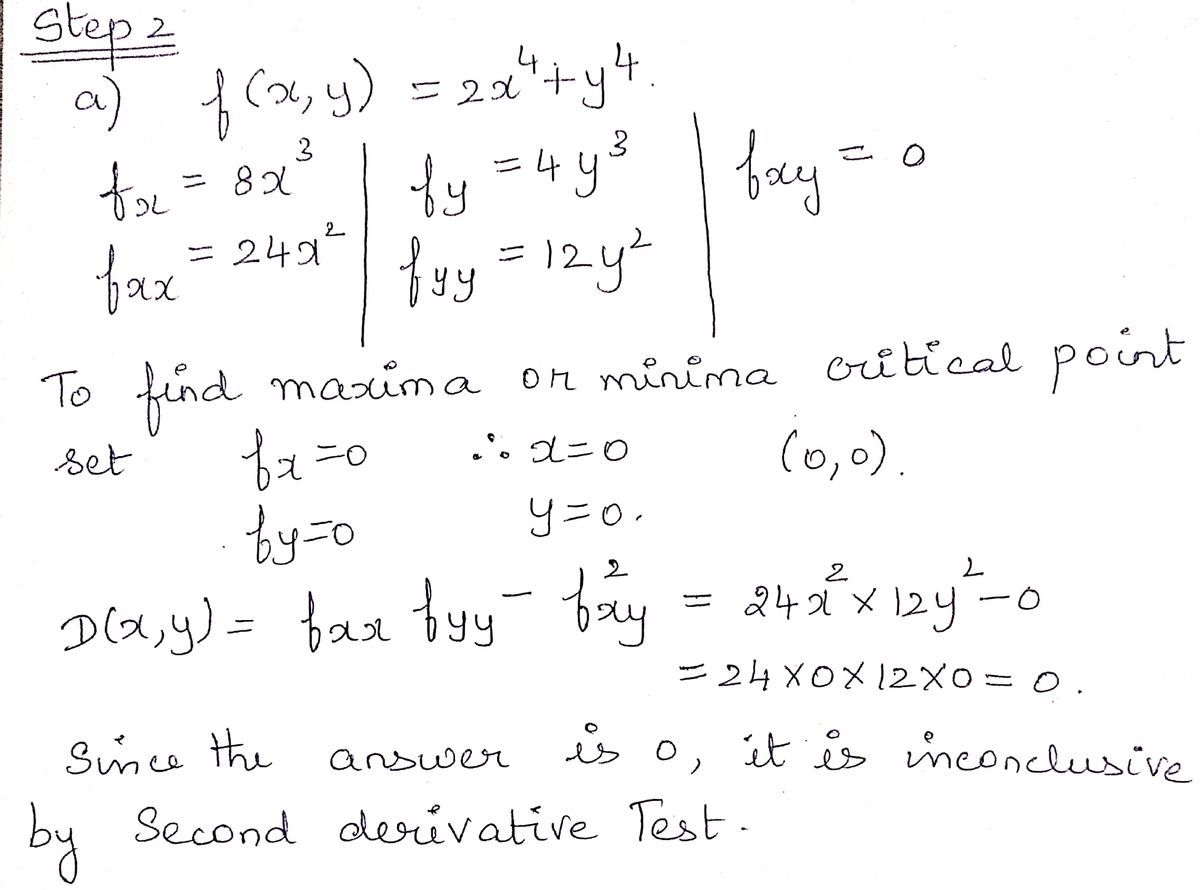 Step 2
a) f(x, y) = 2x⁴ + y⁴.
fx = 8x³ | fy = 4y³ | fxy = 0
fxx = 24x² | fyy = 12y²
To find maxima or minima critical point
set fx = 0 ∴ x = 0 (0, 0).
fy = 0 y = 0.
D(x, y) = fxx fyy - f²xy = 24x² × 12y² - 0
= 24 × 0 × 12 × 0 = 0.
Since the answer is 0, it is inconclusive
by Second derivative Test.